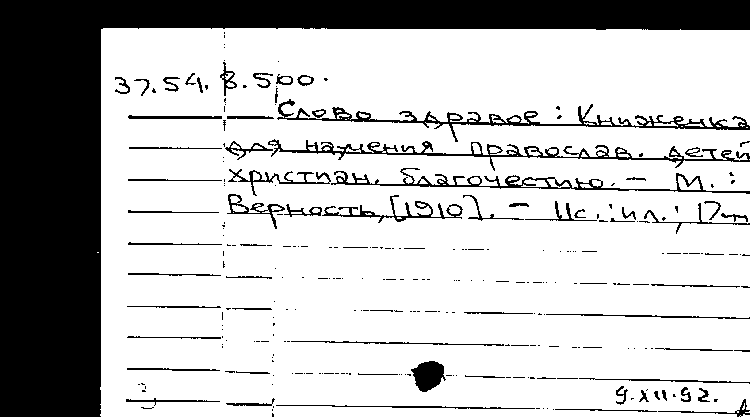 37.54.8.500.
Слово здравое : Книженка
для научения православ. детей
христиан. благочестию. — М. :
Верность, [1910]. — 11с. : ил. ; 17
9.XII.92.